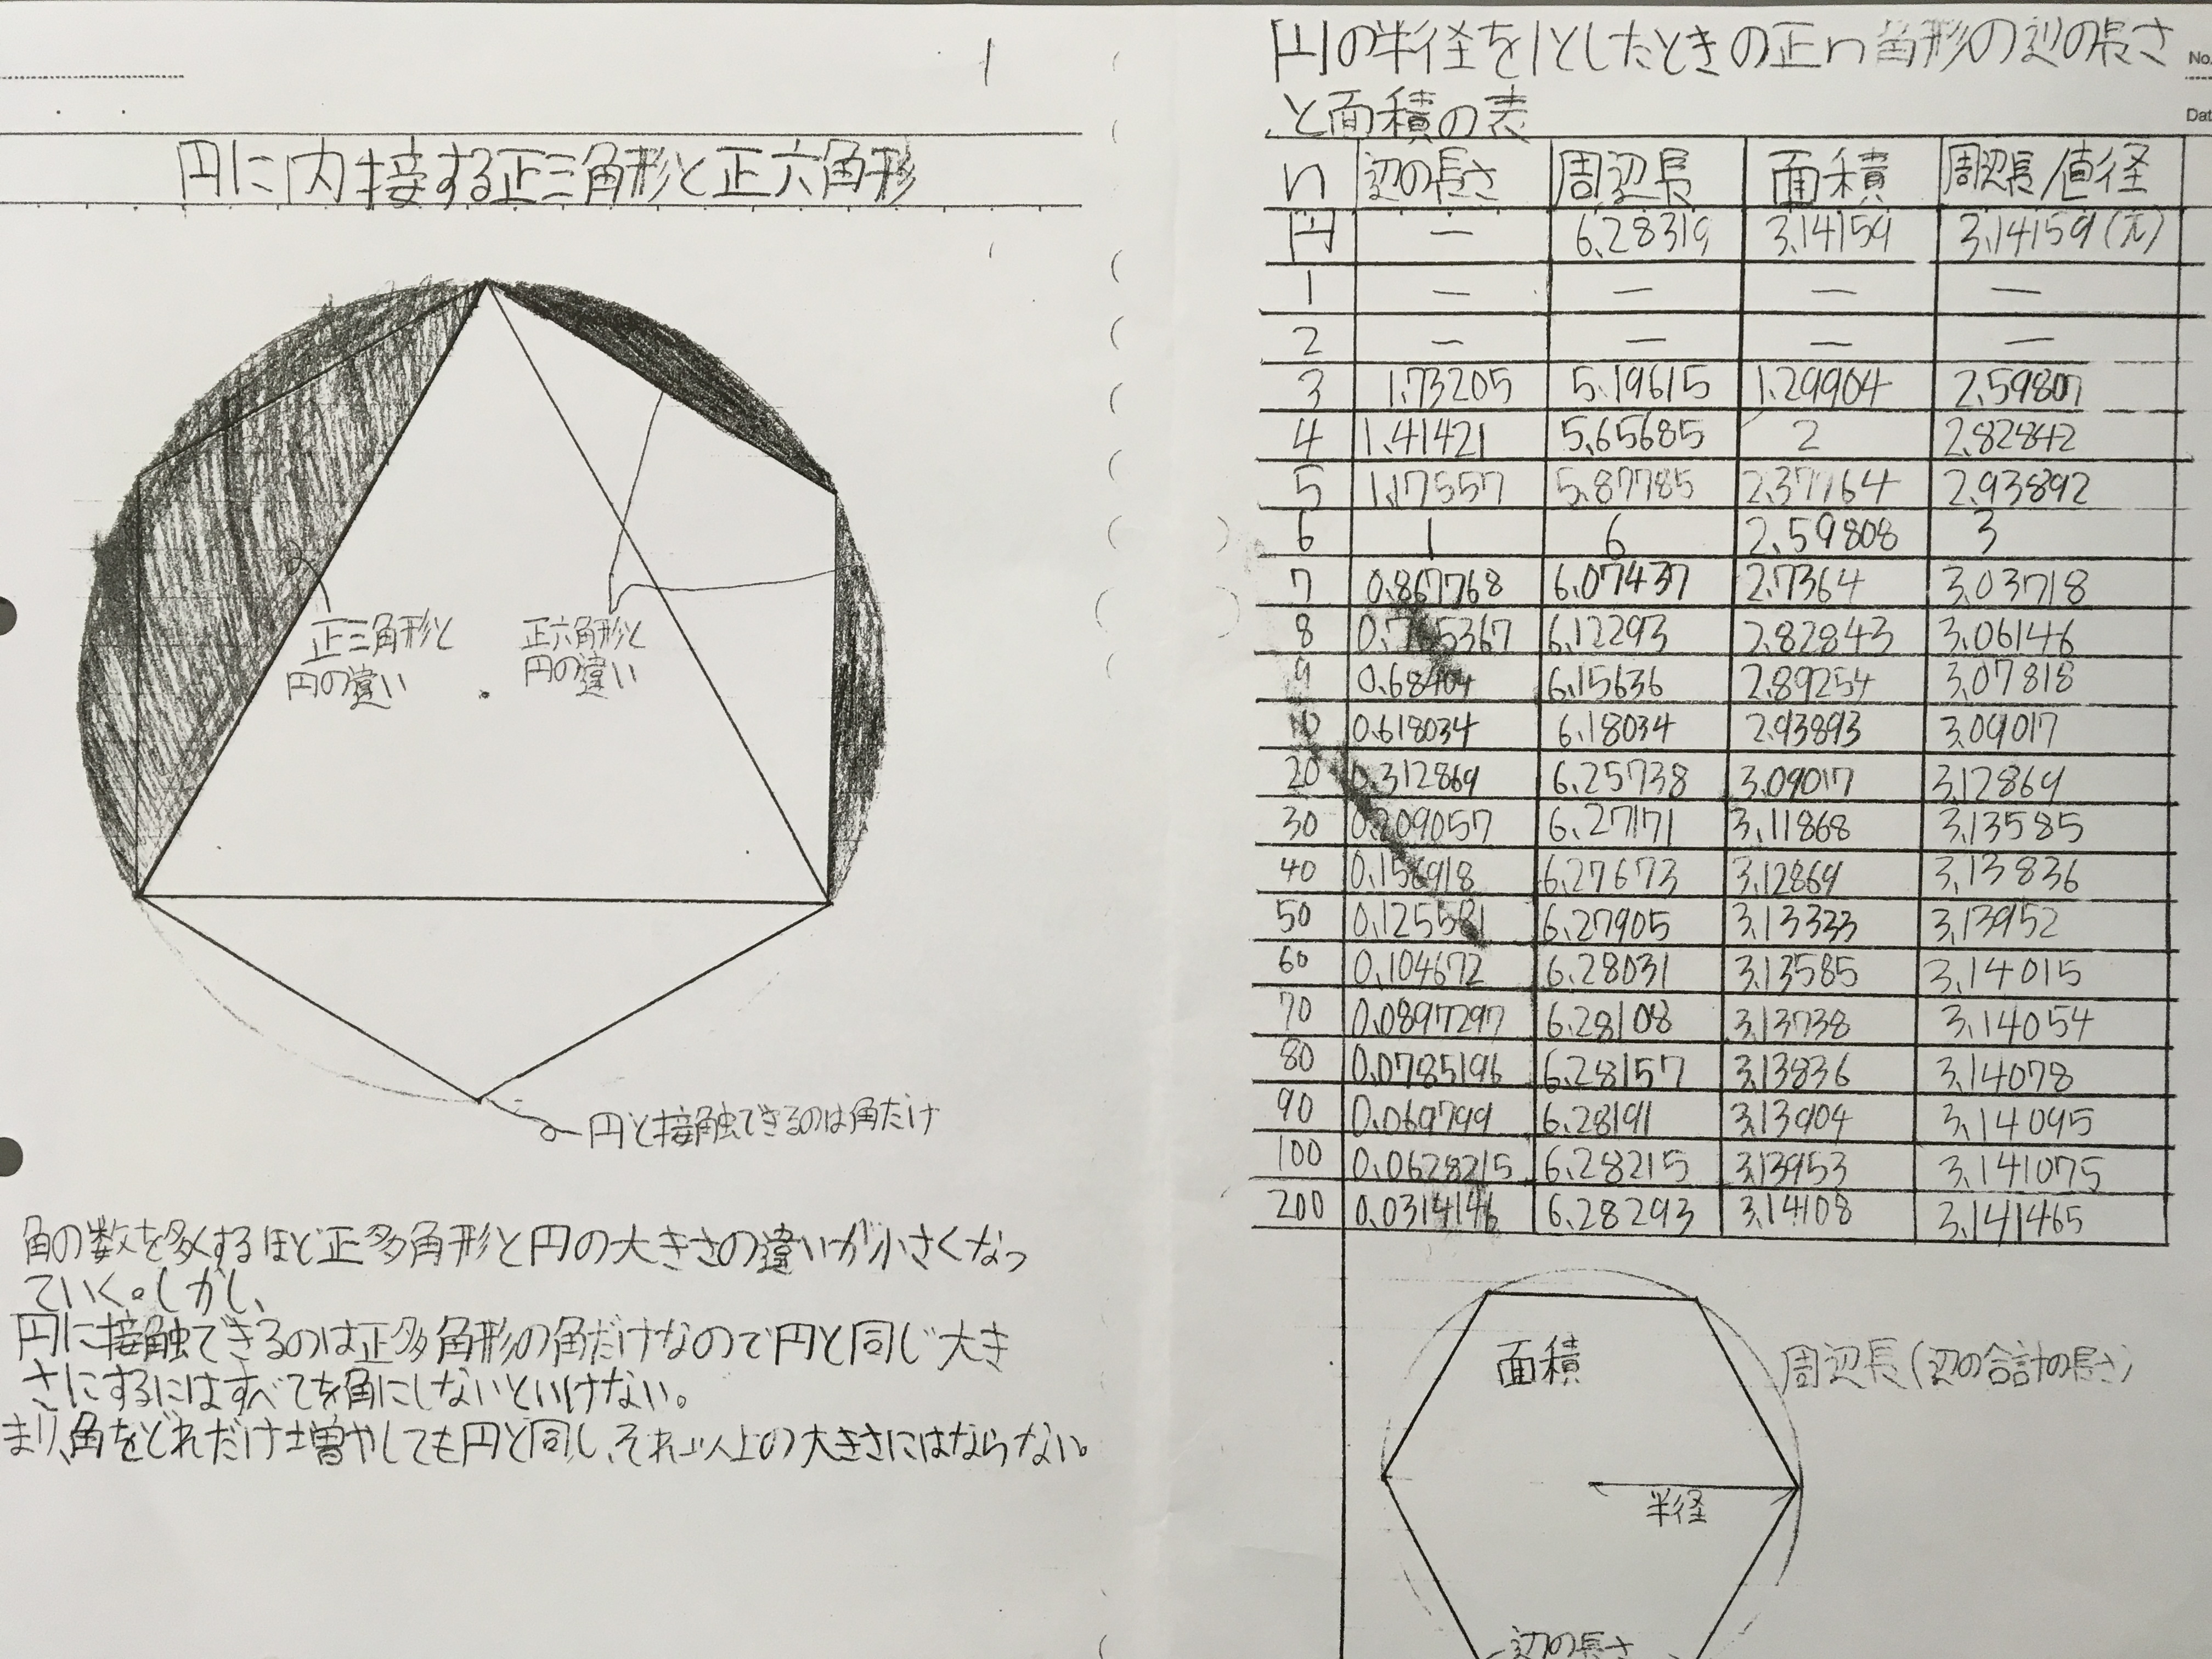 1
円に内接する正三角形と正六角形
正三角形と
円の違い
正六角形と
円の違い
円と接触できるのは角だけ
角の数を多くするほど正多角形と円の大きさの違いが小さくなっ
ていく。しかし、
円に接触できるのは正多角形の角だけなので円と同じ大き
さにするにはすべてを角にしないといけない。
まり、角をどれだけ増やしても円と同じ、それ以上の大きさにはならない。
円の半径を1としたときの正n角形の辺の長さ
と面積の表
No.
Dat
n 辺の長さ 周辺長 面積 周辺長/直径
円 — 6.28319 3.14159 3.14159(π)
1 — — — —
2 — — — —
3 1.73205 5.19615 1.29904 2.59807
4 1.41421 5.65685 2 2.82842
5 1.17557 5.87785 2.37764 2.93892
6 1 6 2.59808 3
7 0.867768 6.07437 2.7364 3.03718
8 0.765367 6.12293 2.82843 3.06146
9 0.68404 6.15636 2.89254 3.07818
10 0.618034 6.18034 2.93893 3.09017
20 0.312869 6.25738 3.09017 3.12869
30 0.209057 6.27171 3.11868 3.13585
40 0.156918 6.27673 3.12869 3.13836
50 0.125581 6.27905 3.13333 3.13952
60 0.104672 6.28031 3.13585 3.14015
70 0.0897297 6.28108 3.13738 3.14054
80 0.0785196 6.28157 3.13836 3.14078
90 0.069799 6.28191 3.13904 3.14095
100 0.0628215 6.28215 3.13953 3.141075
200 0.0314146 6.28293 3.14108 3.141465
面積
周辺長(辺の合計の長さ)
半径
辺の長さ